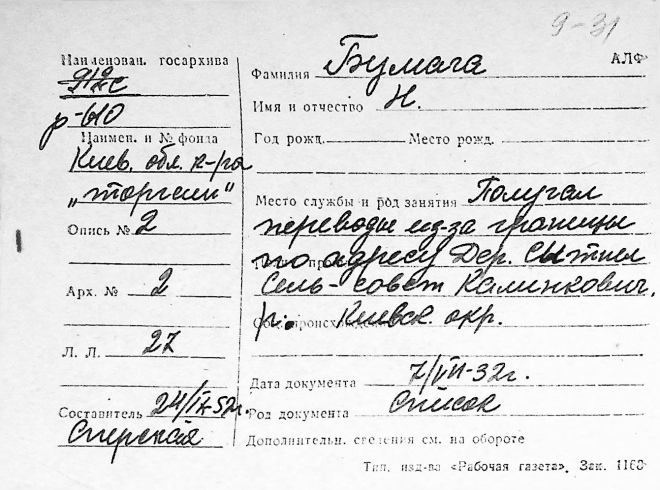 9-31
АЛФ
Наименован. госархива
912с
р-610
Наимен. и № фонда
Киев. обл. к-ра
„торгсин"
Опись № 2
Арх. № 2
Л. Л. 27
Составитель 24/IX-52г.
Сперская
Фамилия Бумага
Имя и отчество Н.
Год рожд. Место рожд.
Место службы и род занятия Получал
переводы из-за границы
по адресу Дер. Сытня
Сель-совет Калинкович.
р. Киевск. окр.
Дата документа 7/VII-32г.
Род документа Список
Дополнительн. сведения см. на обороте
Тип. изд-ва «Рабочая газета». Зак. 1168